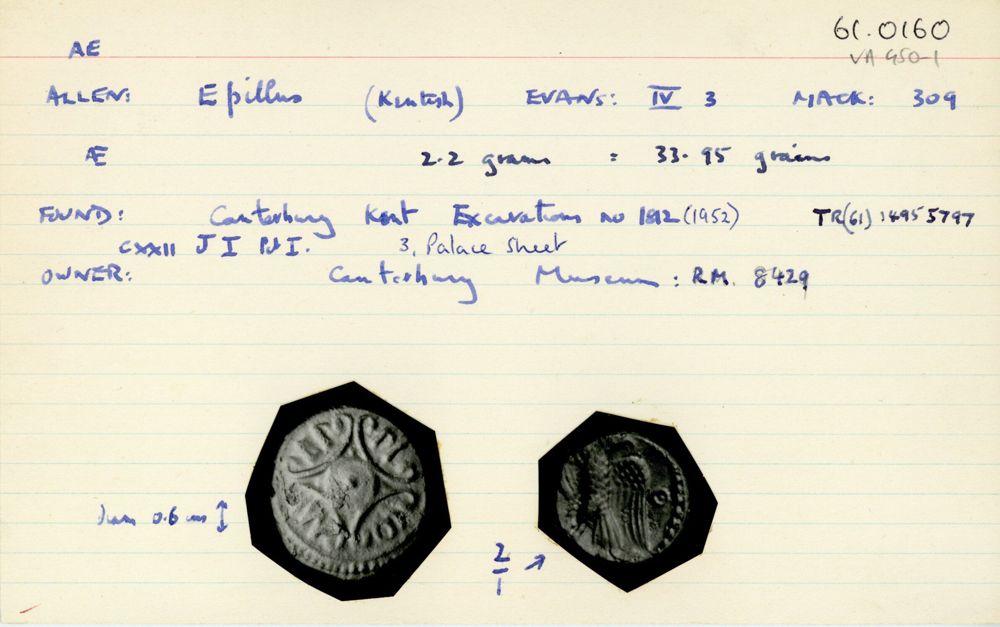 61.0160
VA 450-1
AE
ALLEN: Epillus (Kentish) EVANS: IV 3 MACK: 309
Æ 2.2 grams = 33.95 grains
FOUND: Canterbury Kent Excavations no 1812 (1952) TR(61) 1495 5797
CXXII J I 3, Palace Street
OWNER: Canterbury Museum: R.M. 8429
0.6 cm
2/1